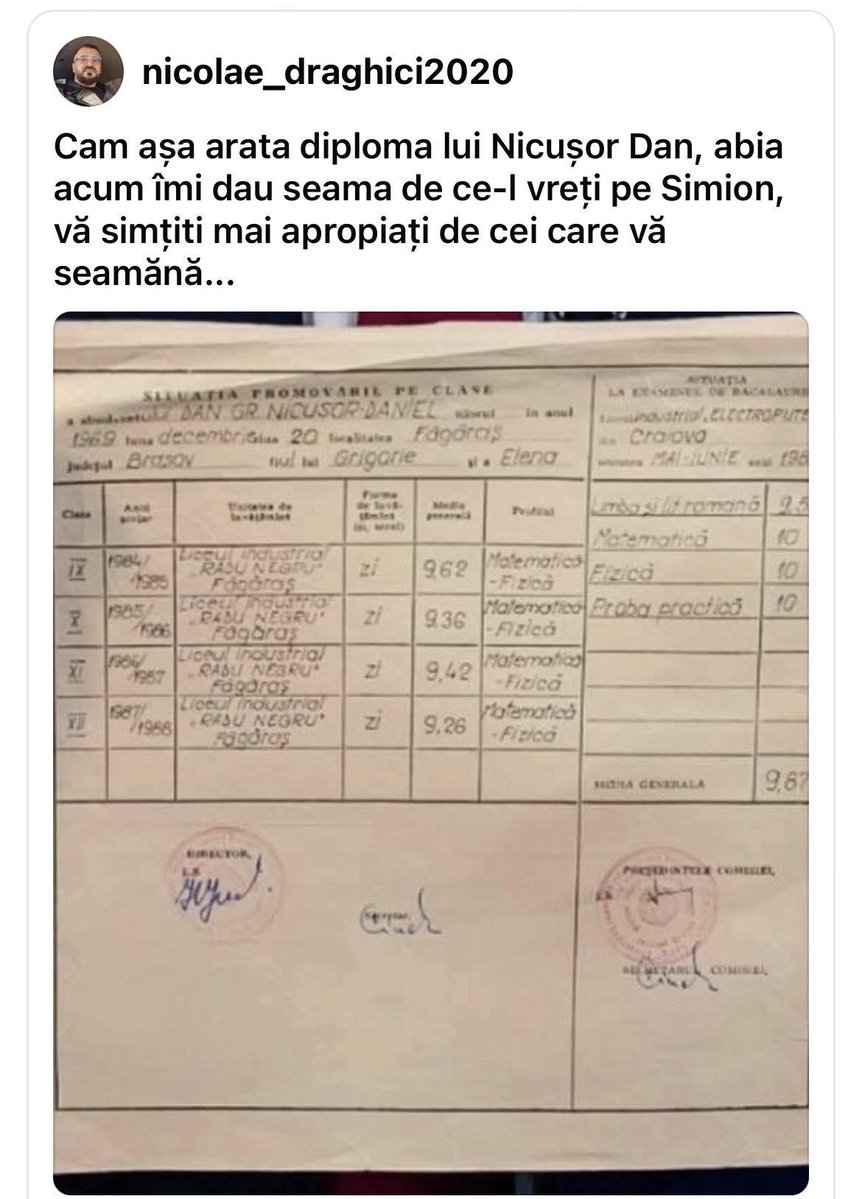 nicolae_draghici2020
Cam așa arata diploma lui Nicușor Dan, abia
acum îmi dau seama de ce-l vreți pe Simion,
vă simțiti mai apropiați de cei care vă
seamănă...
SITUAȚIA PROMOVĂRII PE CLASE
DAN GR. NICUSOR-DANIEL născut în anul
1969 luna decembrie ziua 20 localitatea Făgăraș
județul Brasov fiul lui Grigorie și a Elena
SITUAȚIA
LA EXAMENUL DE BACALAURE
industrial, ELECTROPUTE
din Craiova
MAI-IUNIE anul 198
Clasa Anul școlar Unitatea de învățămînt Forma de învățămînt (zi, seral) Media generală Profilul
IX 1984/1985 Liceul industrial "RADU NEGRU" Făgăraș zi 9,62 Matematică-Fizică
X 1985/1986 Liceul industrial "RADU NEGRU" Făgăraș zi 9,36 Matematică-Fizică
XI 1986/1987 Liceul industrial "RADU NEGRU" Făgăraș zi 9,42 Matematică-Fizică
XII 1987/1988 Liceul industrial "RADU NEGRU" Făgăraș zi 9,26 Matematică-Fizică
Limba și lit. romană 9,5
Matematică 10
Fizică 10
Proba practică 10
MEDIA GENERALA 9,87
DIRECTOR,
L.S.
Secretar,
PREȘEDINTELE COMISIEI,
SECRETARUL COMISIEI,